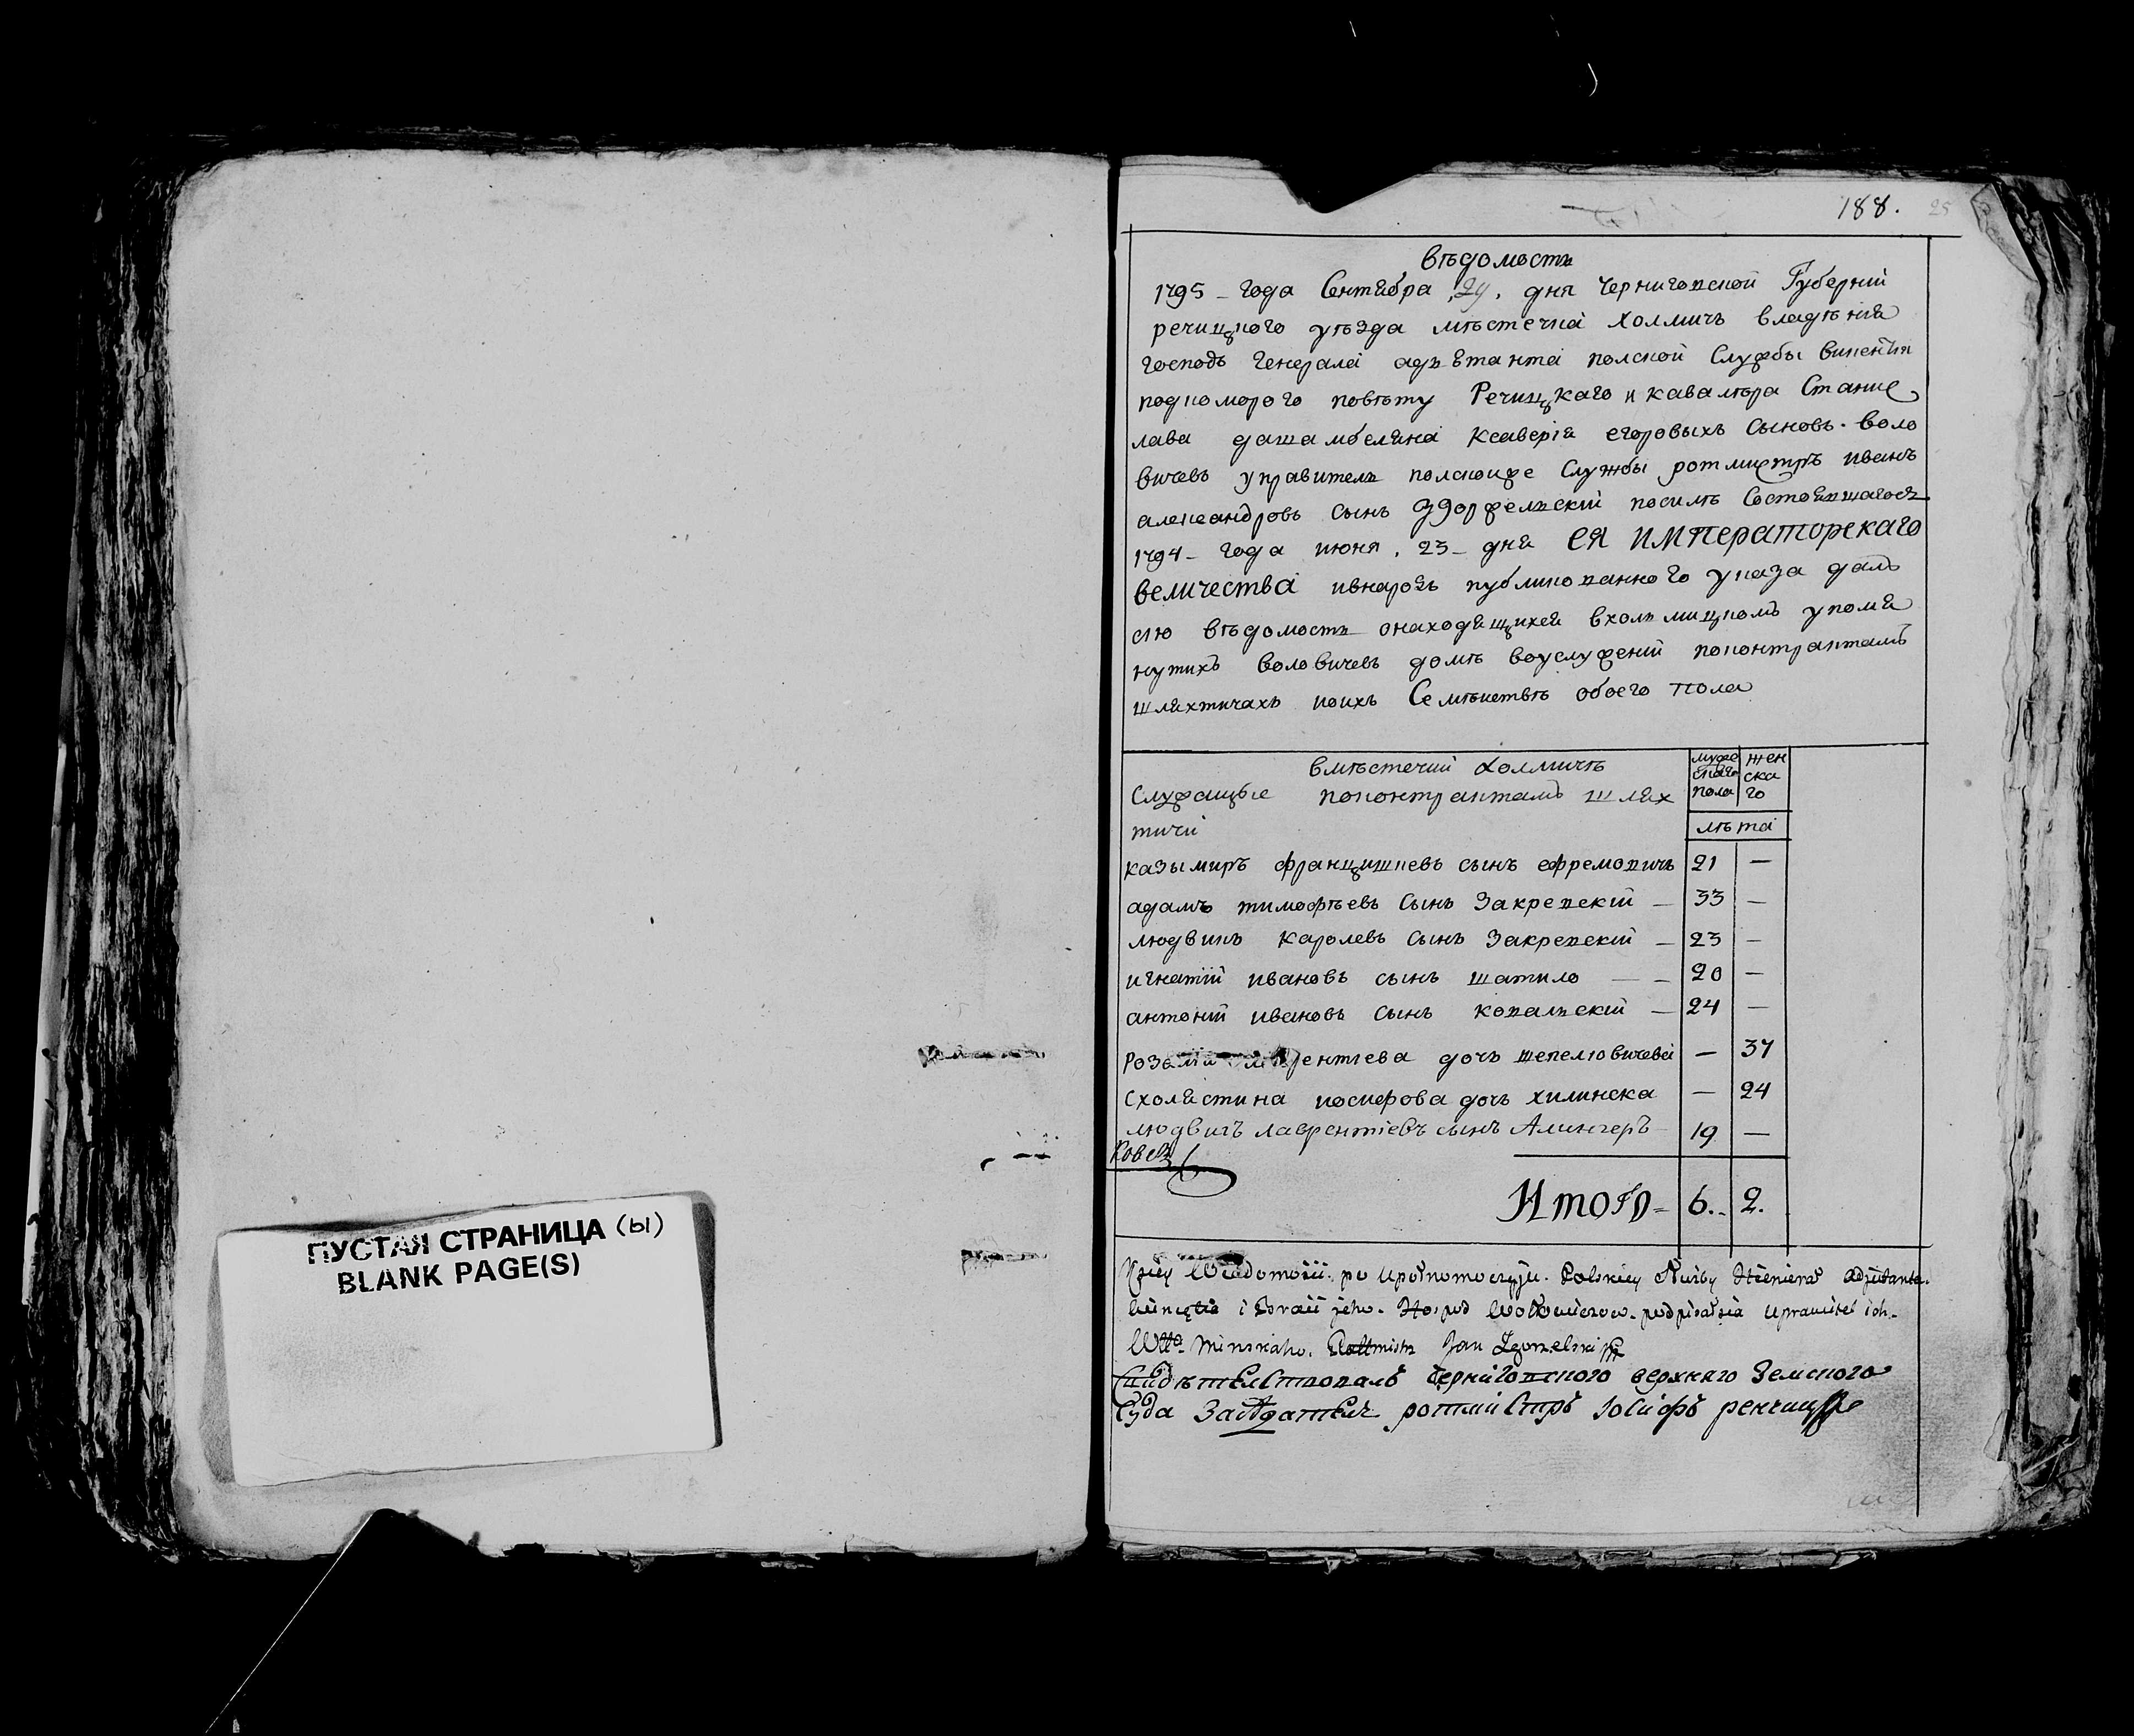 ПУСТАЯ СТРАНИЦА (ы)
BLANK PAGE(S)
188. 25
вѣдомость
1795 – года Сентября 29. дня Черниговской Губернїи
речицкого уѣзда мѣстечка Холмичь владѣнія
господъ генерала адъютанта полской Службы викентія
подкоморого повѣту Речицкаго и кавалѣра Станис
лава да шамбеляна Ксаверія егоровыхъ сыновъ воло
вичевъ управитель полской же Службы ротмистръ иванъ
александровъ сынъ посилѣ Состоявшагося
1794 – года июня 23 – дня ЕЯ ИМПераторскаго
величества ивнародъ публикованного указа далъ
сію вѣдомость онаходящихся вхолмицкомъ упомя
нутихъ воловичевъ домѣ воуслуженїи поконтрактамъ
шляхтичахъ иоихъ Семѣйствѣ обоего пола
вмѣстечкѣ холмичѣ
Служащые поконтрактамъ шлях
тичи
муже скаго пола
жен ска го
лѣта
казымиръ францишковъ сынъ ефремовичь 21 —
адамъ тимофѣевъ сынъ Закревскїй — 33 —
людвикъ Каролевъ сынъ Закревскїй — 23 —
игнатїй ивановъ сынъ шатило — — 20 —
антонїй ивановъ сынъ ковалскїй — 24 —
розалїя лаврентіева дочъ шепелювичева — 37
схолястика иосифова дочъ хилинска — 24
людвигъ лаврентіевъ сынъ Алингеръ 19 —
Итого = 6. 2.
Wiedomosti po upołnomoczyju Polskiey Służby Hienierał Adjutanta
Wincętia i Braii jeho Hospod Wołłowiczow podpisałsia uprawitel ich
Wtta Minskaho Rottmistr Jan
Свидѣтелствовалъ Черниговского верхнего Земского
Суда Засѣдатель ротмистръ Iосифъ